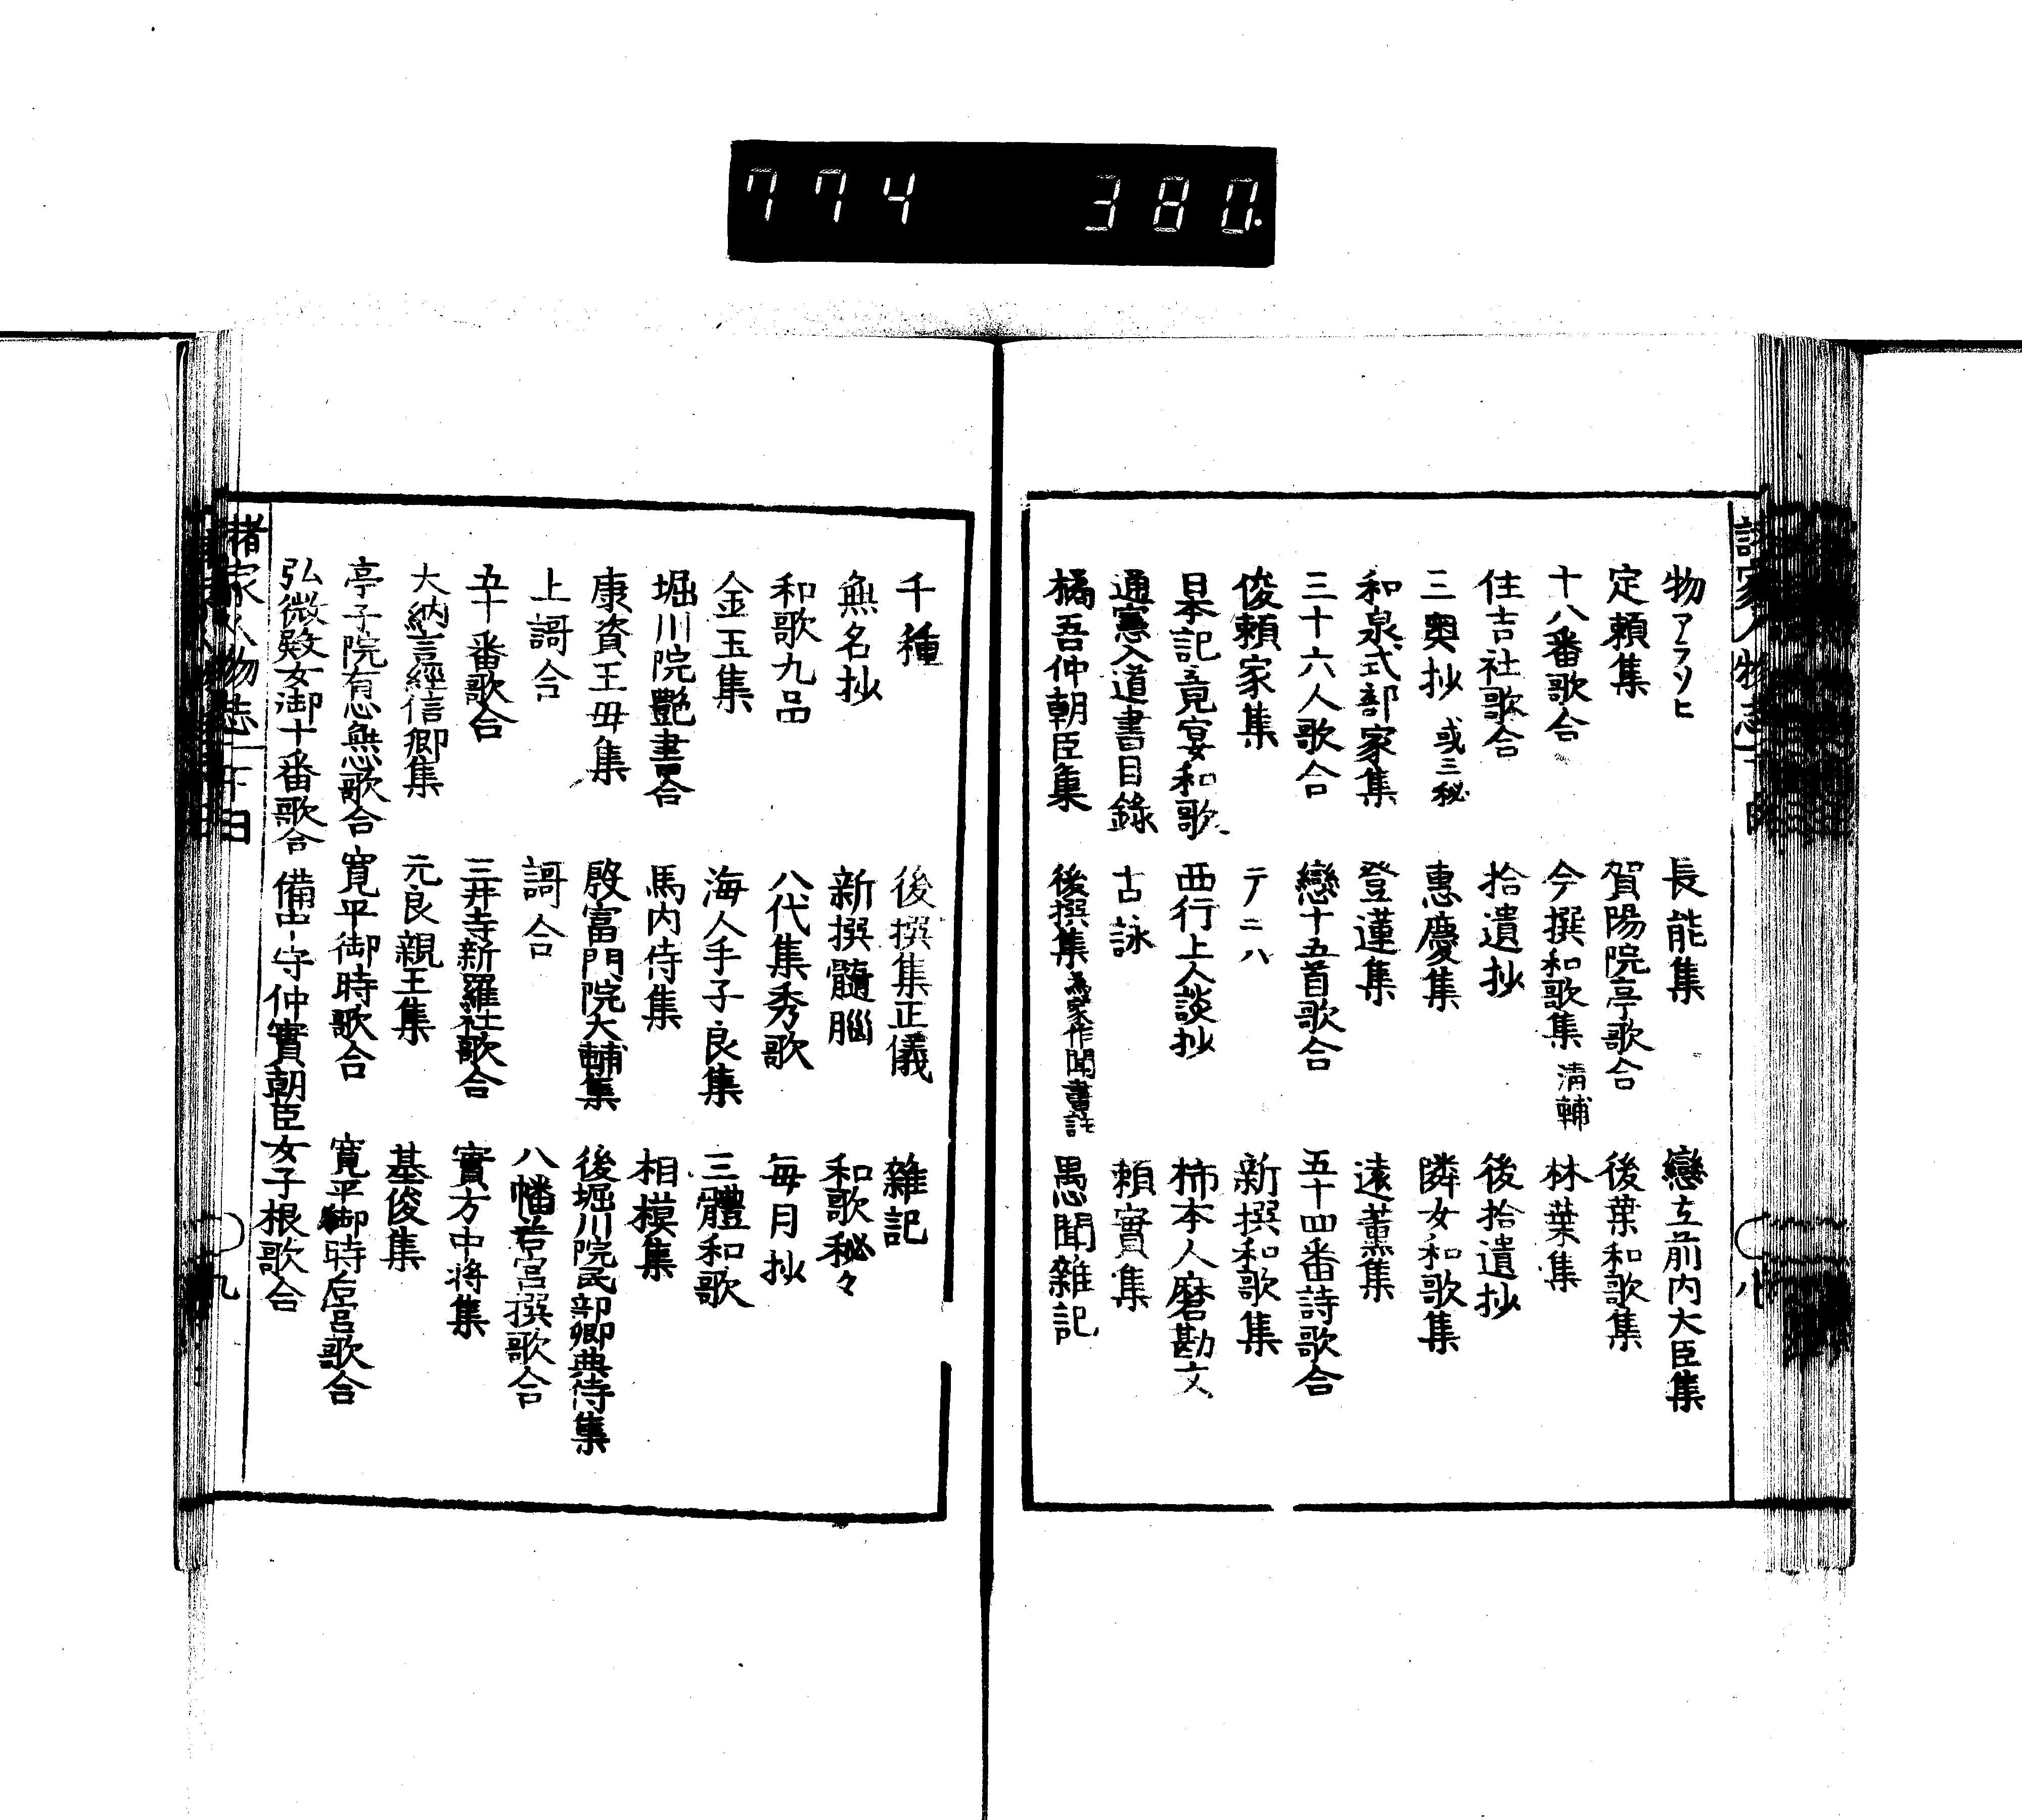 774 380.
物アラソヒ 長能集 戀立前内大臣集
定頼集 賀陽院亭歌合 後葉和歌集
十八番歌合 今撰和歌集 清輔 林葉集
住吉社歌合 拾遺抄 後拾遺抄
三奥抄 或三秘 惠慶集 隣女和歌集
和泉式部家集 登蓮集 遠薫集
三十六人歌合 戀十五首歌合 五十四番詩歌合
俊頼家集 テニハ 新撰和歌集
日本記竟宴和歌 西行上人談抄 柿本人麿勘文
通憲入道書目錄 古詠 頼實集
橘吾仲朝臣集 後撰集 為家作聞書註 愚聞雜記
千種 後撰集正儀 雜記
無名抄 新撰髓腦 和歌秘々
和歌九品 八代集秀歌 毎月抄
金玉集 海人手子良集 三體和歌
堀川院艶書合 馬内侍集 相模集
康資王毋集 殷富門院大輔集 後堀川院民部卿典侍集
上謌合 謌合 八幡若宮撰歌合
五十番歌合 三井寺新羅社歌合 實方中将集
大納言經信卿集 元良親王集 基俊集
亭子院有惢無惢歌合 寛平御時歌合 寛平御時后宮歌合
弘微殿女御十番歌合 備中守仲實朝臣女子根歌合
諸家人物志 下 九